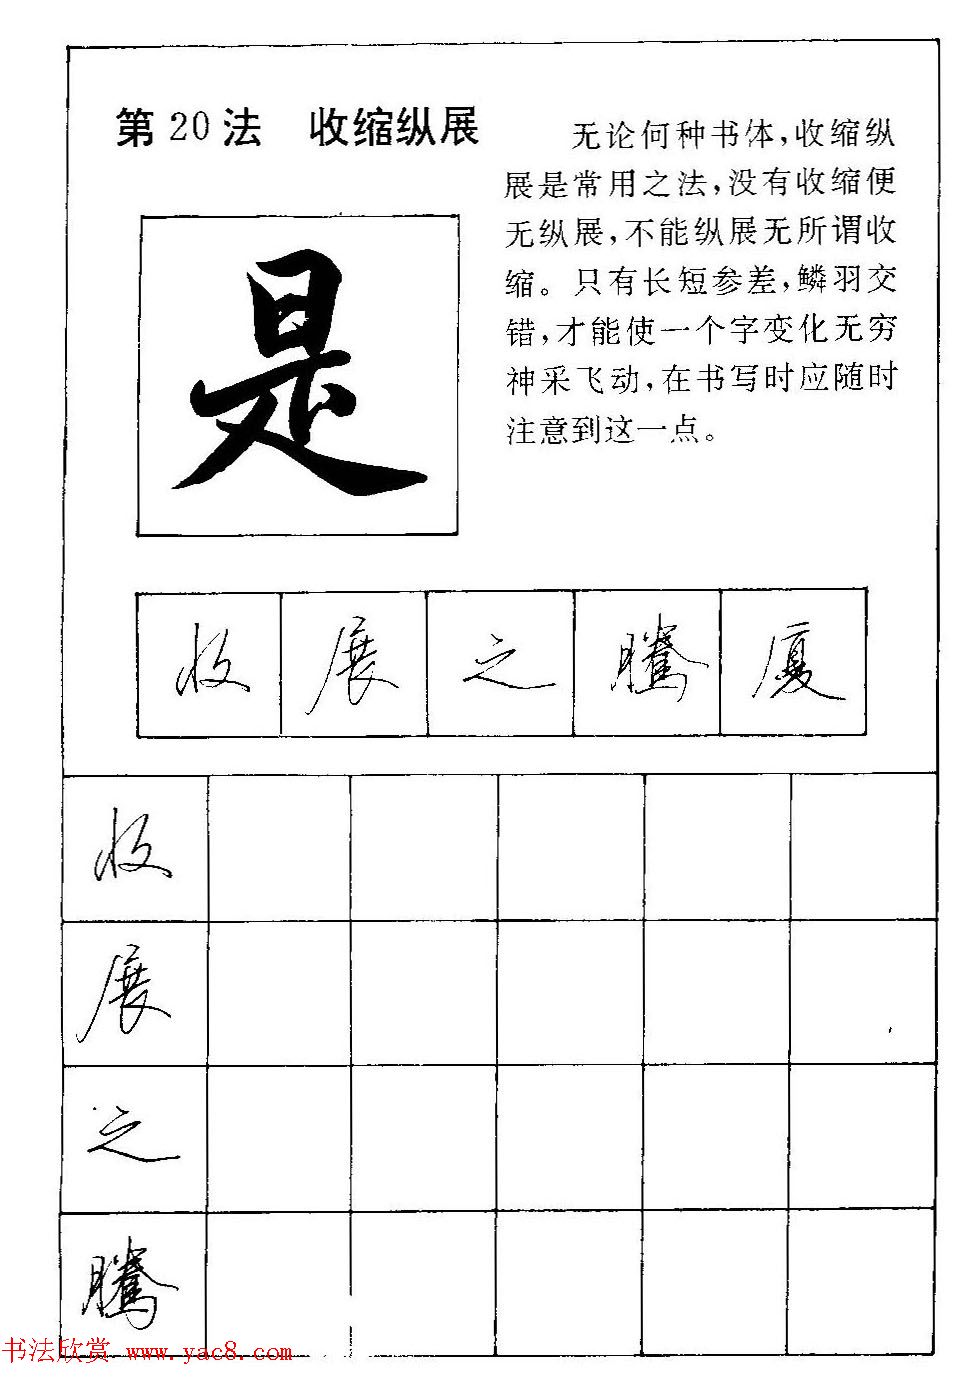 第20法 收缩纵展
无论何种书体,收缩纵
展是常用之法,没有收缩便
无纵展,不能纵展无所谓收
缩。只有长短参差,鳞羽交
错,才能使一个字变化无穷
神采飞动,在书写时应随时
注意到这一点。
是
收 展 之 騰 厦
收
展
之
騰
书法欣赏 www.yac8.com